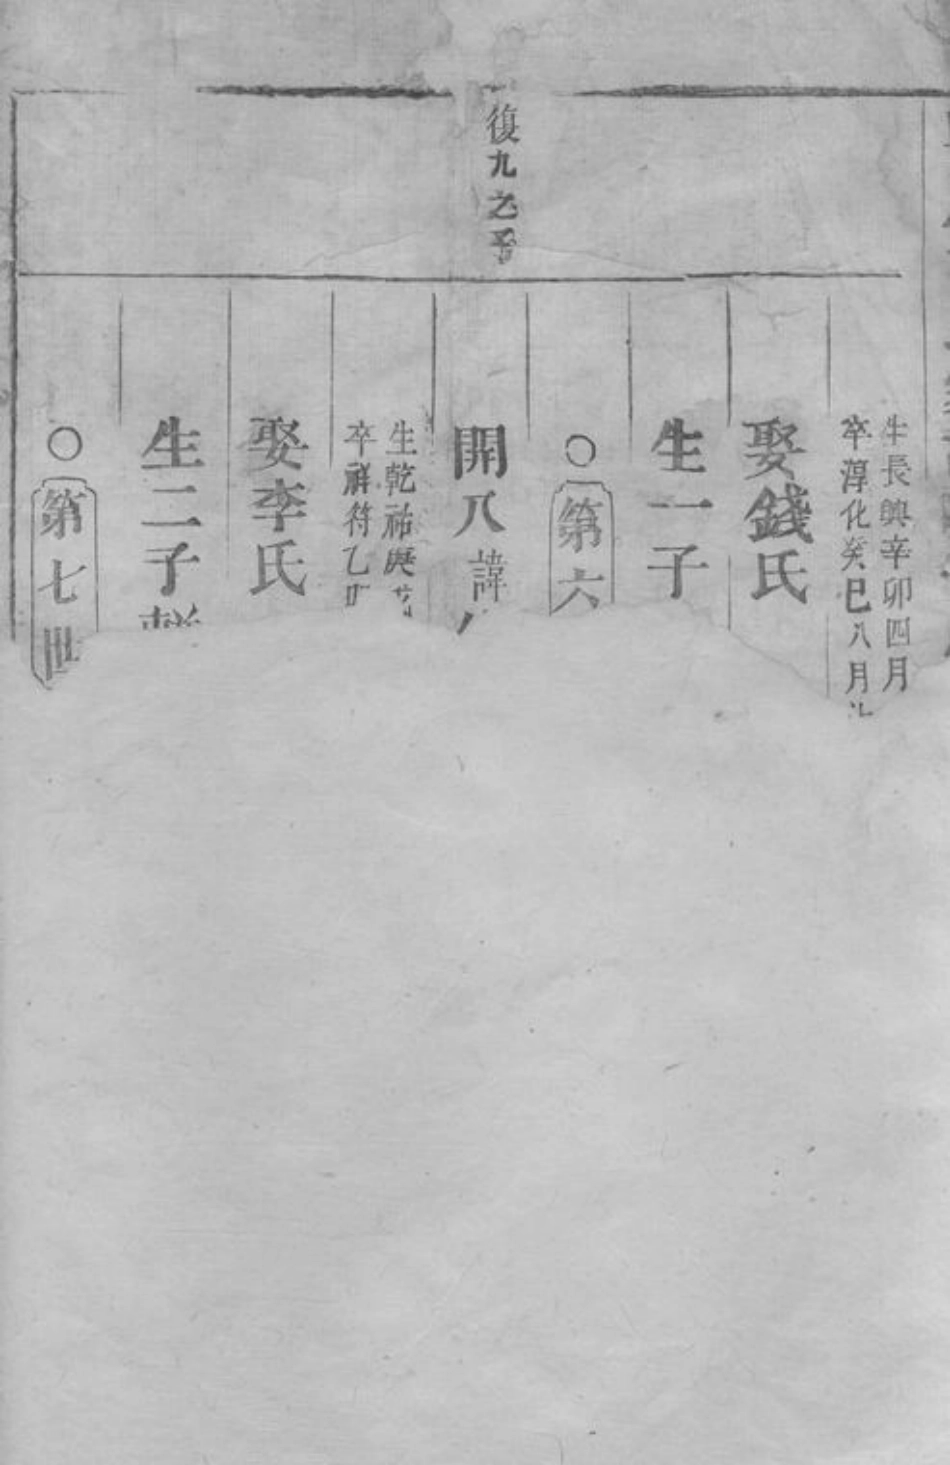 生長興辛卯四月
卒淳化癸巳八月
娶錢氏
生一子
○第六
復九之子
開八諱
生乾祐庚戌
卒祥符乙
娶李氏
生二子
○第七世